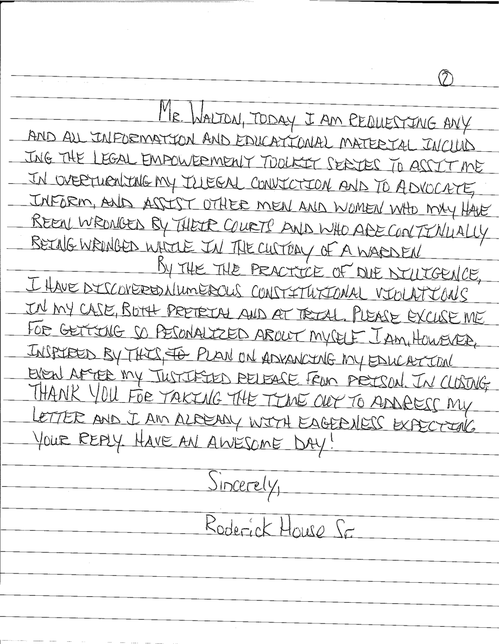 2
MR. WALTON, TODAY I AM REQUESTING ANY
AND ALL INFORMATION AND EDUCATIONAL MATERIAL INCLUD
ING THE LEGAL EMPOWERMENT TOOLKIT SERIES TO ASSIT ME
IN OVERTURNING MY ILLEGAL CONVICTION AND TO ADVOCATE,
INFORM, AND ASSIST OTHER MEN AND WOMEN WHO MAY HAVE
BEEN WRONGED BY THEIR COURTS AND WHO ARE CONTINUALLY
BEING WRONGED WHILE IN THE CUSTODY OF A WARDEN
BY THE THE PRACTICE OF DUE DILIGENCE,
I HAVE DISCOVERED NUMEROUS CONSTITUTIONAL VIOLATIONS
IN MY CASE, BOTH PRETRIAL AND AT TRIAL. PLEASE EXCUSE ME
FOR GETTING SO PESONALIZED ABOUT MYSELF I AM, HOWEVER,
INSPIRED BY THIS, TO PLAN ON ADVANCING MY EDUCATION
EVEN AFTER MY JUSTIFIED RELEASE FROM PRISON. IN CLOSING,
THANK YOU FOR TAKING THE TIME OUT TO ADDRESS MY
LETTER AND I AM ALREADY WITH EAGERNESS EXPECTING
YOUR REPLY. HAVE AN AWESOME DAY!
Sincerely,
Roderick House Sr.